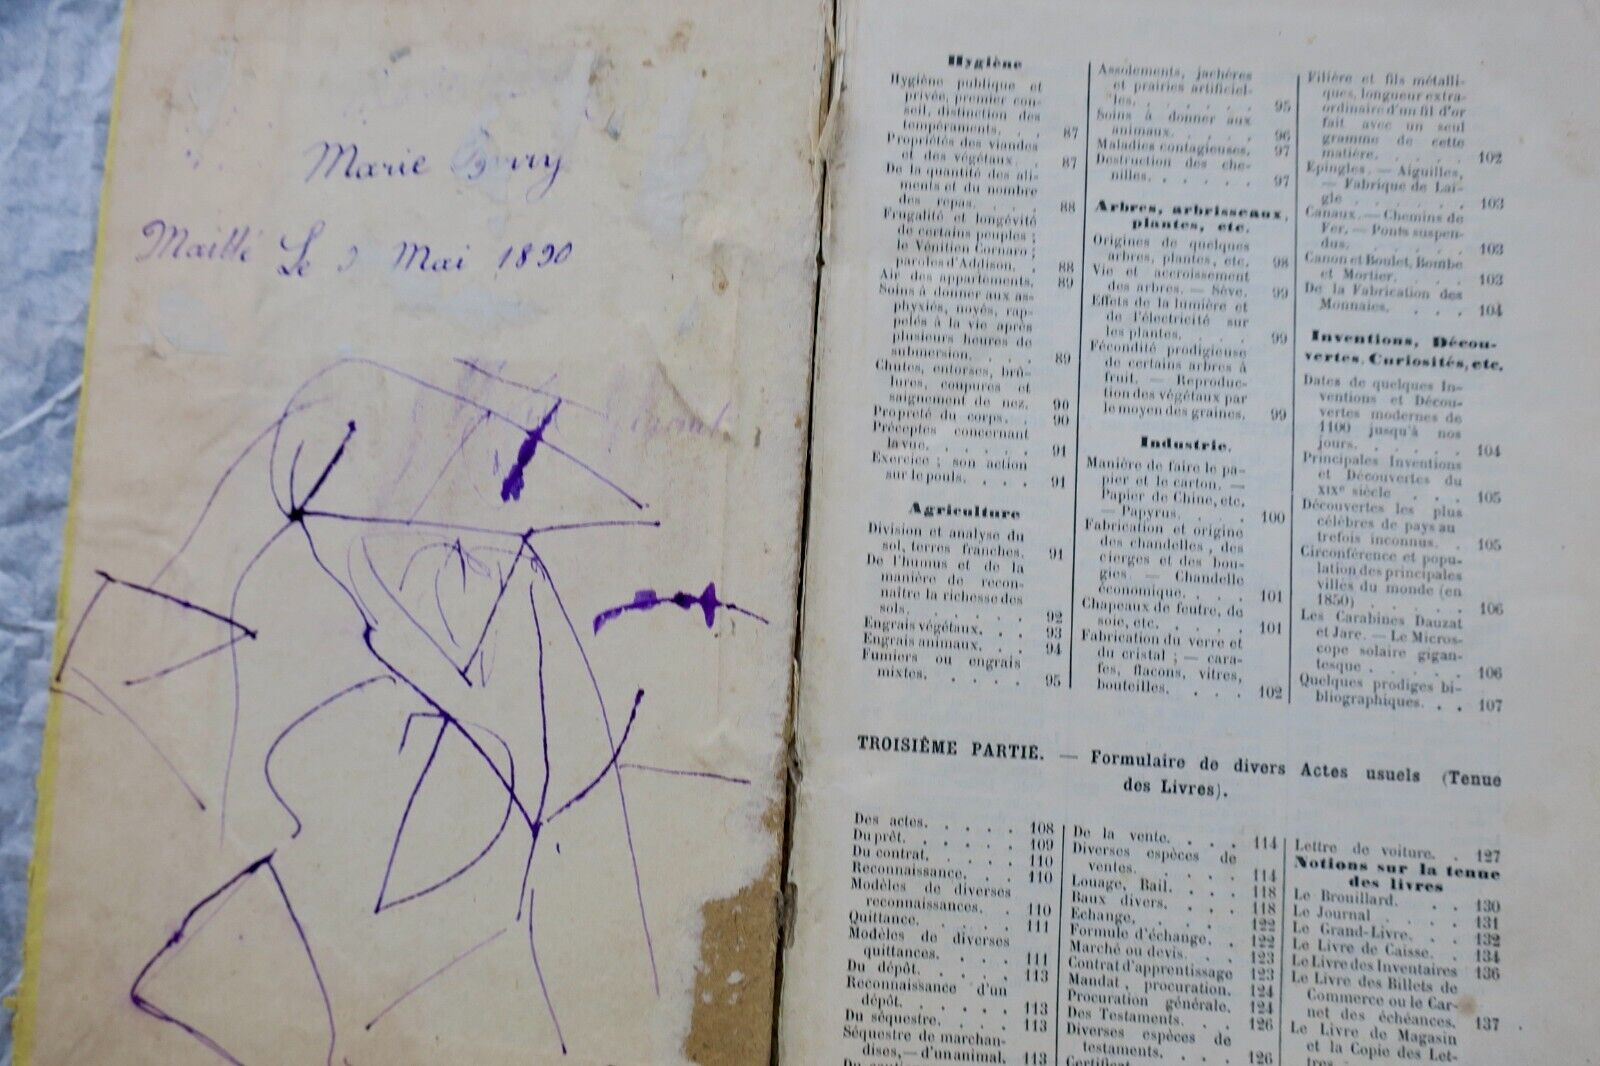 Marie
Maillé Le 3 Mai 1890
Hygiène
Hygiène publique et
privée, premier con-
seil, distinction des
tempéraments. . . 87
Propriétés des viandes
et des végétaux. . 87
De la quantité des ali-
ments et du nombre
des repas. . . . 88
Frugalité et longévité
de certains peuples ;
le Vénitien Cornaro ;
paroles d'Addison. . 88
Air des appartements. 89
Soins à donner aux as-
phyxiés, noyés, rap-
pelés à la vie après
plusieurs heures de
submersion. . . . 89
Chutes, entorses, brû-
lures, coupures et
saignement de nez. 90
Propreté du corps. . 90
Préceptes concernant
la vue. . . . . . 91
Exercice ; son action
sur le pouls. . . . 91
Agriculture
Division et analyse du
sol, terres franches. 91
De l'humus et de la
manière de recon-
naître la richesse des
sols. . . . . . . 92
Engrais végétaux. . . 93
Engrais animaux. . . 94
Fumiers ou engrais
mixtes. . . . . . 95
Assolements, jachères
et prairies artificiel-
les. . . . . . . 95
Soins à donner aux
animaux. . . . . 96
Maladies contagieuses. 97
Destruction des che-
nilles. . . . . . 97
Arbres, arbrisseaux,
plantes, etc.
Origines de quelques
arbres, plantes, etc. 98
Vie et accroissement
des arbres. — Sève. 99
Effets de la lumière et
de l'électricité sur
les plantes. . . . . 99
Fécondité prodigieuse
de certains arbres à
fruit. — Reproduc-
tion des végétaux par
le moyen des graines. 99
Industrie.
Manière de faire le pa-
pier et le carton. —
Papier de Chine, etc.
— Papyrus. . . . 100
Fabrication et origine
des chandelles, des
cierges et des bou-
gies. — Chandelle
économique. . . . 101
Chapeaux de feutre, de
soie, etc. . . . . 101
Fabrication du verre et
du cristal ; — cara-
fes, flacons, vitres,
bouteilles. . . . . 102
Filière et fils métalli-
ques, longueur extra-
ordinaire d'un fil d'or
fait avec un seul
gramme de cette
matière. . . . . . 102
Epingles. — Aiguilles,
— Fabrique de Lai-
gle . . . . . . . 103
Canaux. — Chemins de
Fer. — Ponts suspen-
dus. . . . . . . 103
Canon et Boulet, Bombe
et Mortier. . . . . 103
De la Fabrication des
Monnaies. . . . . 104
Inventions, Décou-
vertes, Curiosités, etc.
Dates de quelques In-
ventions et Décou-
vertes modernes de
1100 jusqu'à nos
jours. . . . . . . 104
Principales Inventions
et Découvertes du
XIXe siècle . . . 105
Découvertes les plus
célèbres de pays au
trefois inconnus. . 105
Circonférence et popu-
lation des principales
villes du monde (en
1850) . . . . . . 106
Les Carabines Dauzat
et Jarc. — Le Micros-
cope solaire gigan-
tesque . . . . . . 106
Quelques prodiges bi-
bliographiques. . . 107
TROISIÈME PARTIE. — Formulaire de divers Actes usuels (Tenue
des Livres).
Des actes. . . . . 108
Du prêt. . . . . . 109
Du contrat. . . . . 110
Reconnaissance. . . 110
Modèles de diverses
reconnaissances. . 110
Quittance. . . . . 111
Modèles de diverses
quittances. . . . 111
Du dépôt. . . . . 113
Reconnaissance d'un
dépôt. . . . . . 113
Du séquestre. . . . 113
Séquestre de marchan-
dises, — d'un animal. 113
De la vente. . . . 114
Diverses espèces de
ventes. . . . . . 114
Louage, Bail. . . . 118
Baux divers. . . . 118
Echange. . . . . 122
Formule d'échange. . 122
Marché ou devis. . . 123
Contrat d'apprentissage 123
Mandat, procuration. 124
Procuration générale. 124
Des Testaments. . . 126
Diverses espèces de
testaments. . . . 126
Certificat
Lettre de voiture. . 127
Notions sur la tenue
des livres
Le Brouillard. . . 130
Le Journal . . . . 131
Le Grand-Livre. . . 132
Le Livre de Caisse. . 134
Le Livre des Inventaires 136
Le Livre des Billets de
Commerce ou le Car-
net des échéances. 137
Le Livre de Magasin
et la Copie des Let-
tres